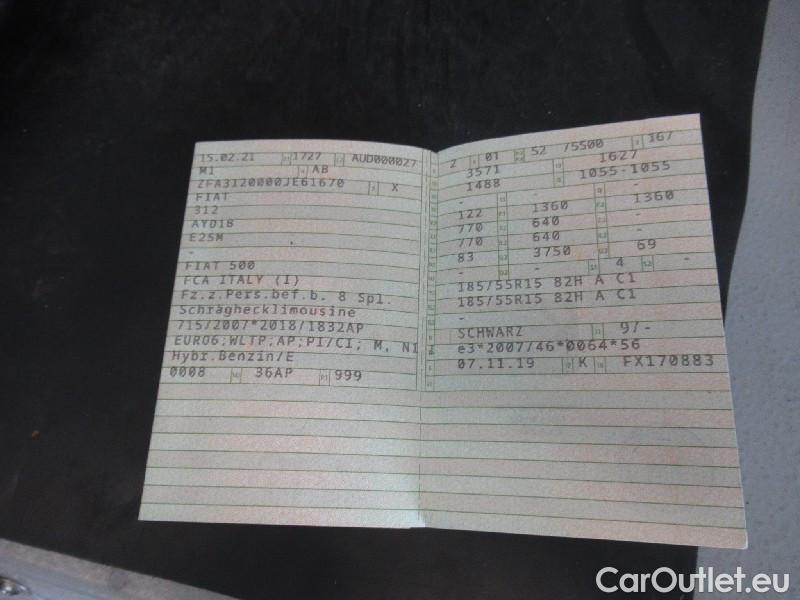 15.02.21 1727 AUD000027
M1 AB
ZFA3120000JE61670 X
FIAT
312
AYD1B
E25M
-
FIAT 500
FCA ITALY (I)
Fz.z.Pers.bef.b. 8 Spl.
Schräghecklimousine
715/2007*2018/1832AP
EURO6;WLTP;AP;PI/CI; M, N1
Hybr.Benzin/E
0008 36AP 999
2 01 52 /5500 167
3571 1627
1488 1055-1055
- - -
122 1360 1360
770 640 -
770 640 -
83 3750 69
- - 4 -
185/55R15 82H A C1
185/55R15 82H A C1
-
SCHWARZ 9/-
e3*2007/46*0064*56
07.11.19 K FX170883
CarOutlet.eu